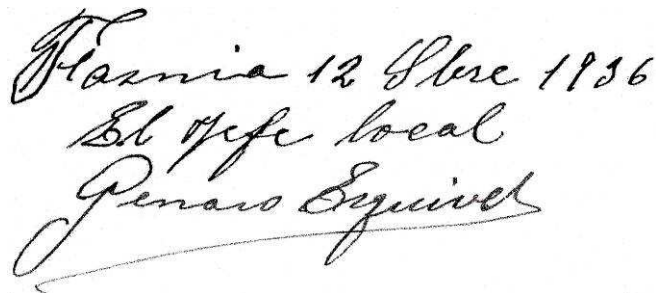 Fasnia 12 8bre 1936
El Jefe local
Genaro Esquivel